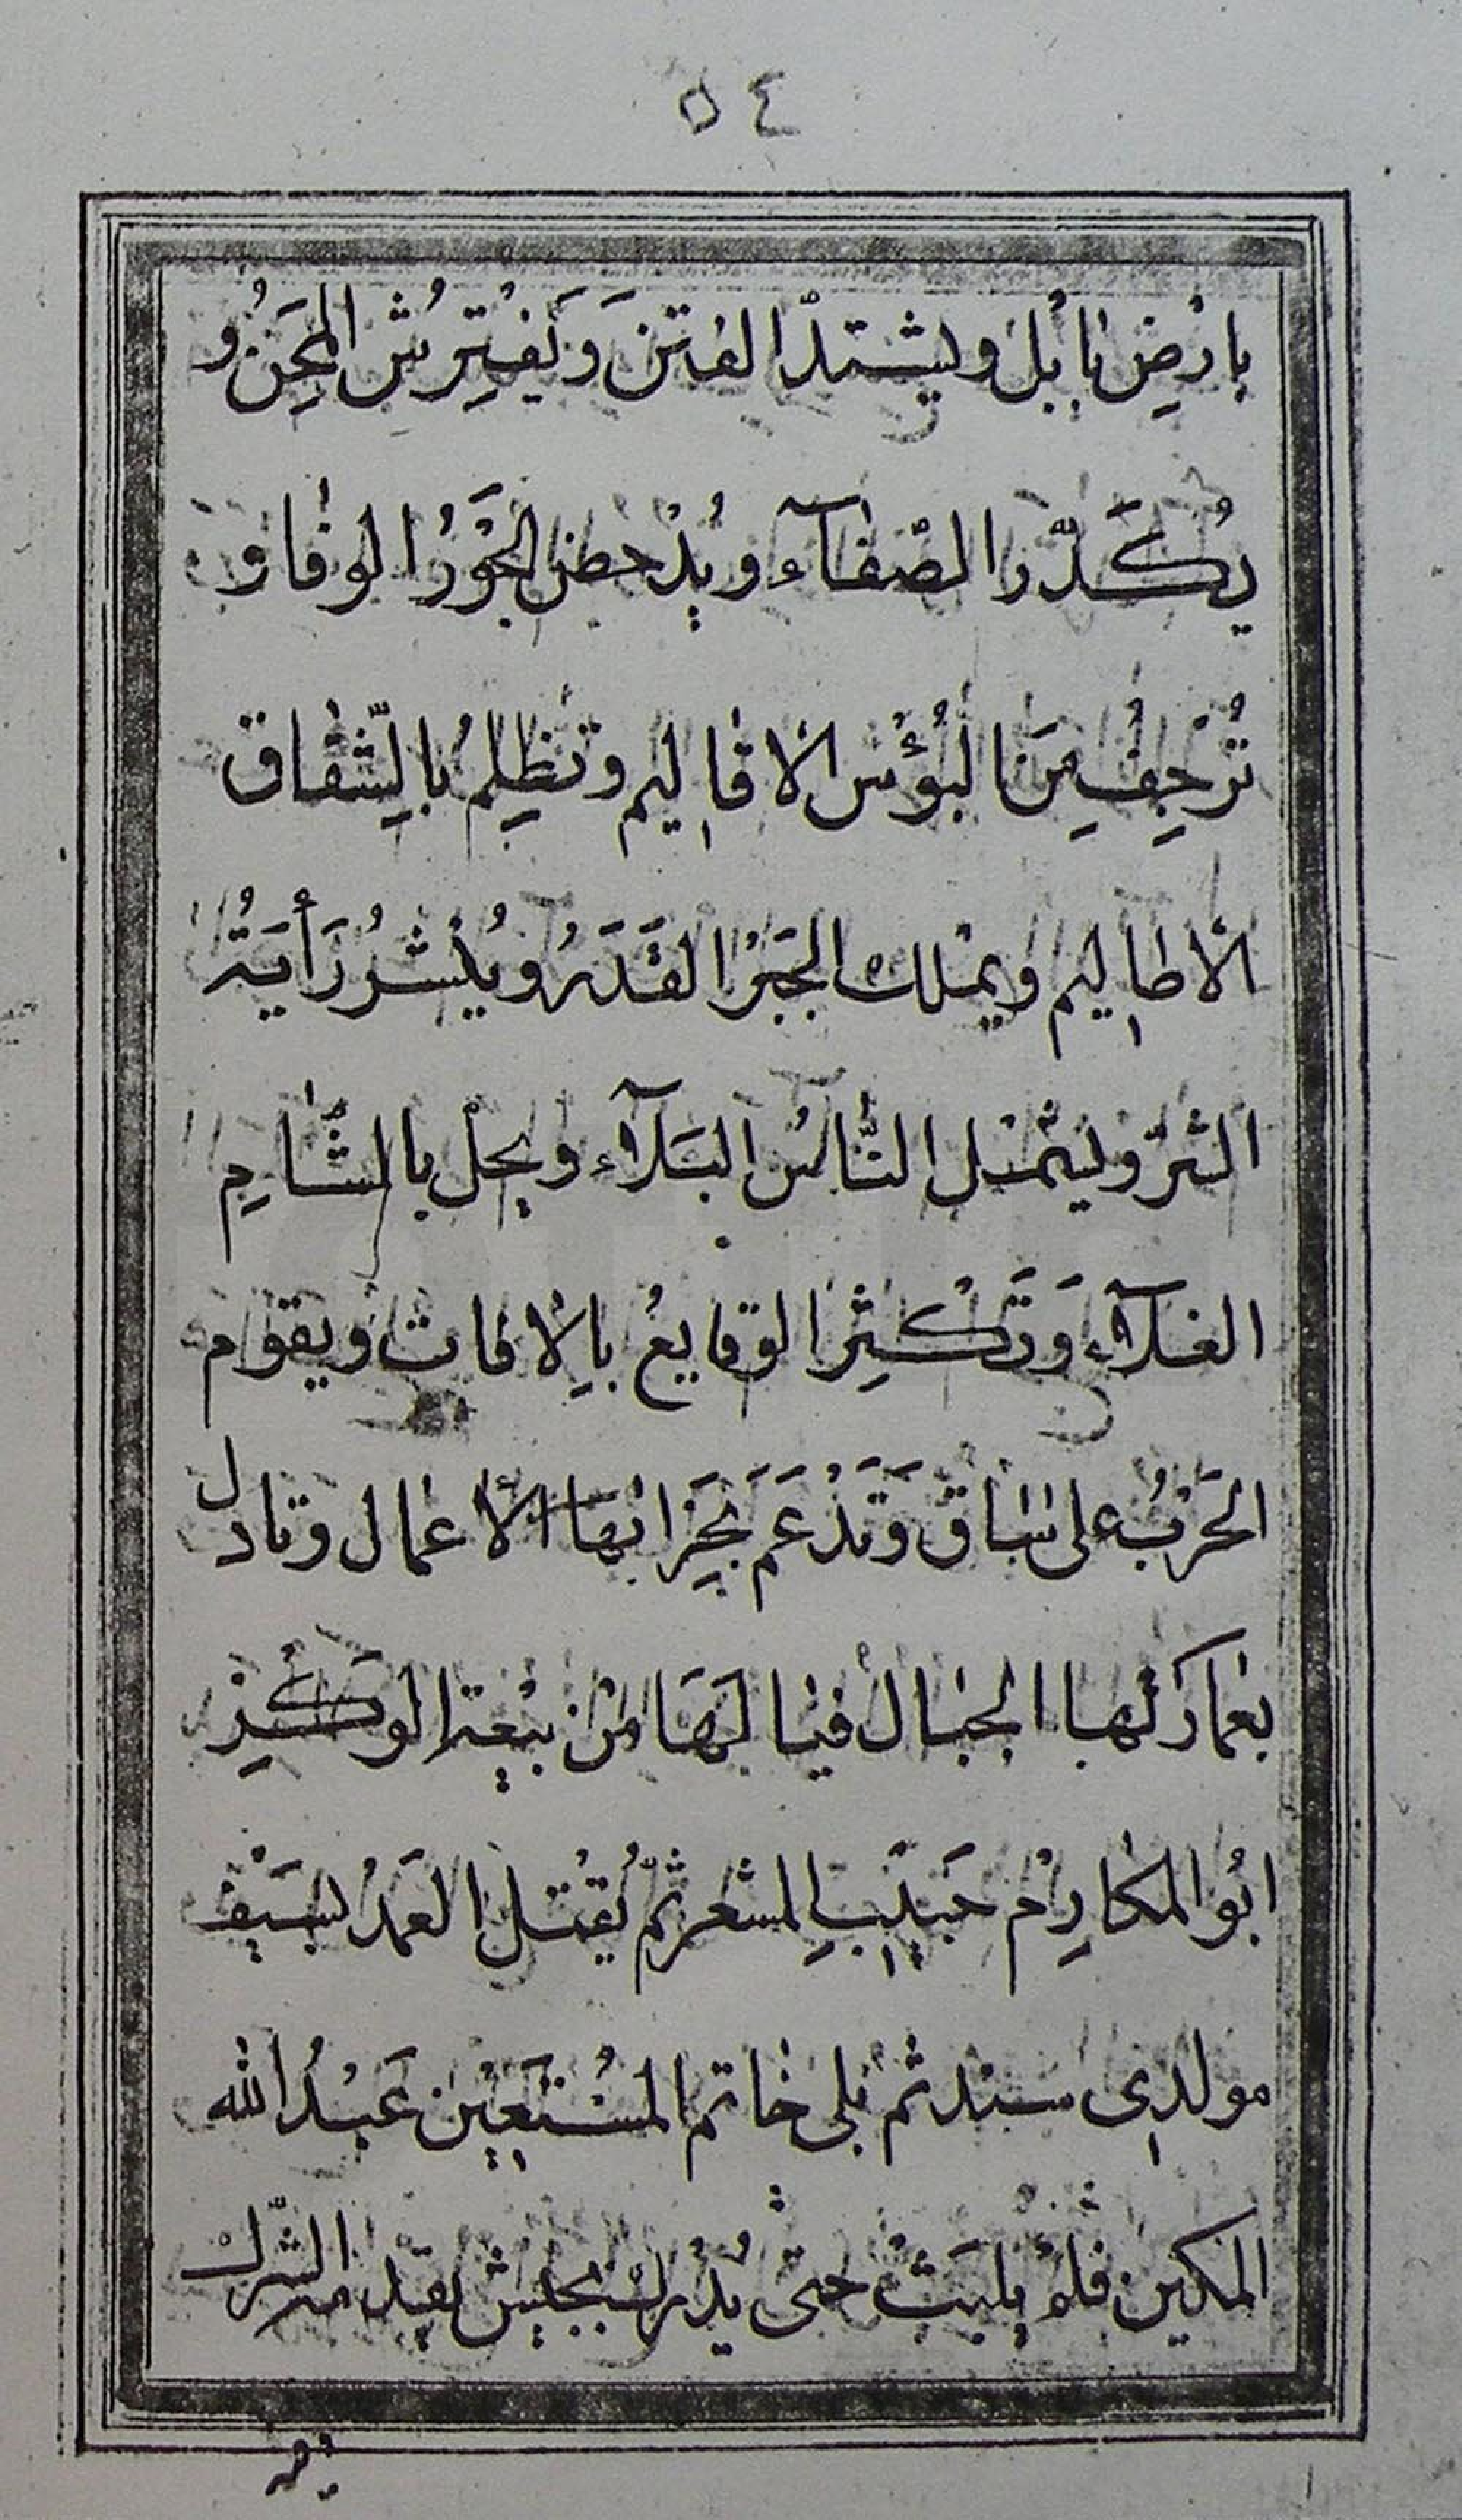 ٥٤
بارْضِ بابل ويشتدّ الفتنَ وَيَفْتِرشُ المِحَنُ و
يُكَدّر الصّفآء ويُدْحض الجَوْرُ الوفا و
تُرْجِفُ مِنَ البُؤْس الاقاليم وتظلِمُ بالشّقاق
الأطاليم ويملك القَدَرُ ويُنْشرُ رَأيَةُ
الشرّ ويشمل النّاسُ البَلآء ويحلّ بالشّامِ
الغلآء وَتَكْثِر الوقايعُ بالافات ويقوم
الحَرْبُ على سٰاق وَتَدْعَم الأعمال وتادل
الجبال فيا لَهَا مِنْ الوكيز
ابُو المكارِم حَبيب ثمّ يُقْتل العَمْدُ بسَيْف
مولدى سند ثم يلى خاتم المُسْتَعين عَبْدُ الله
المكين فلمْ يلبَثْ حتى يُدْرك بجيش يقدمه الشّرك